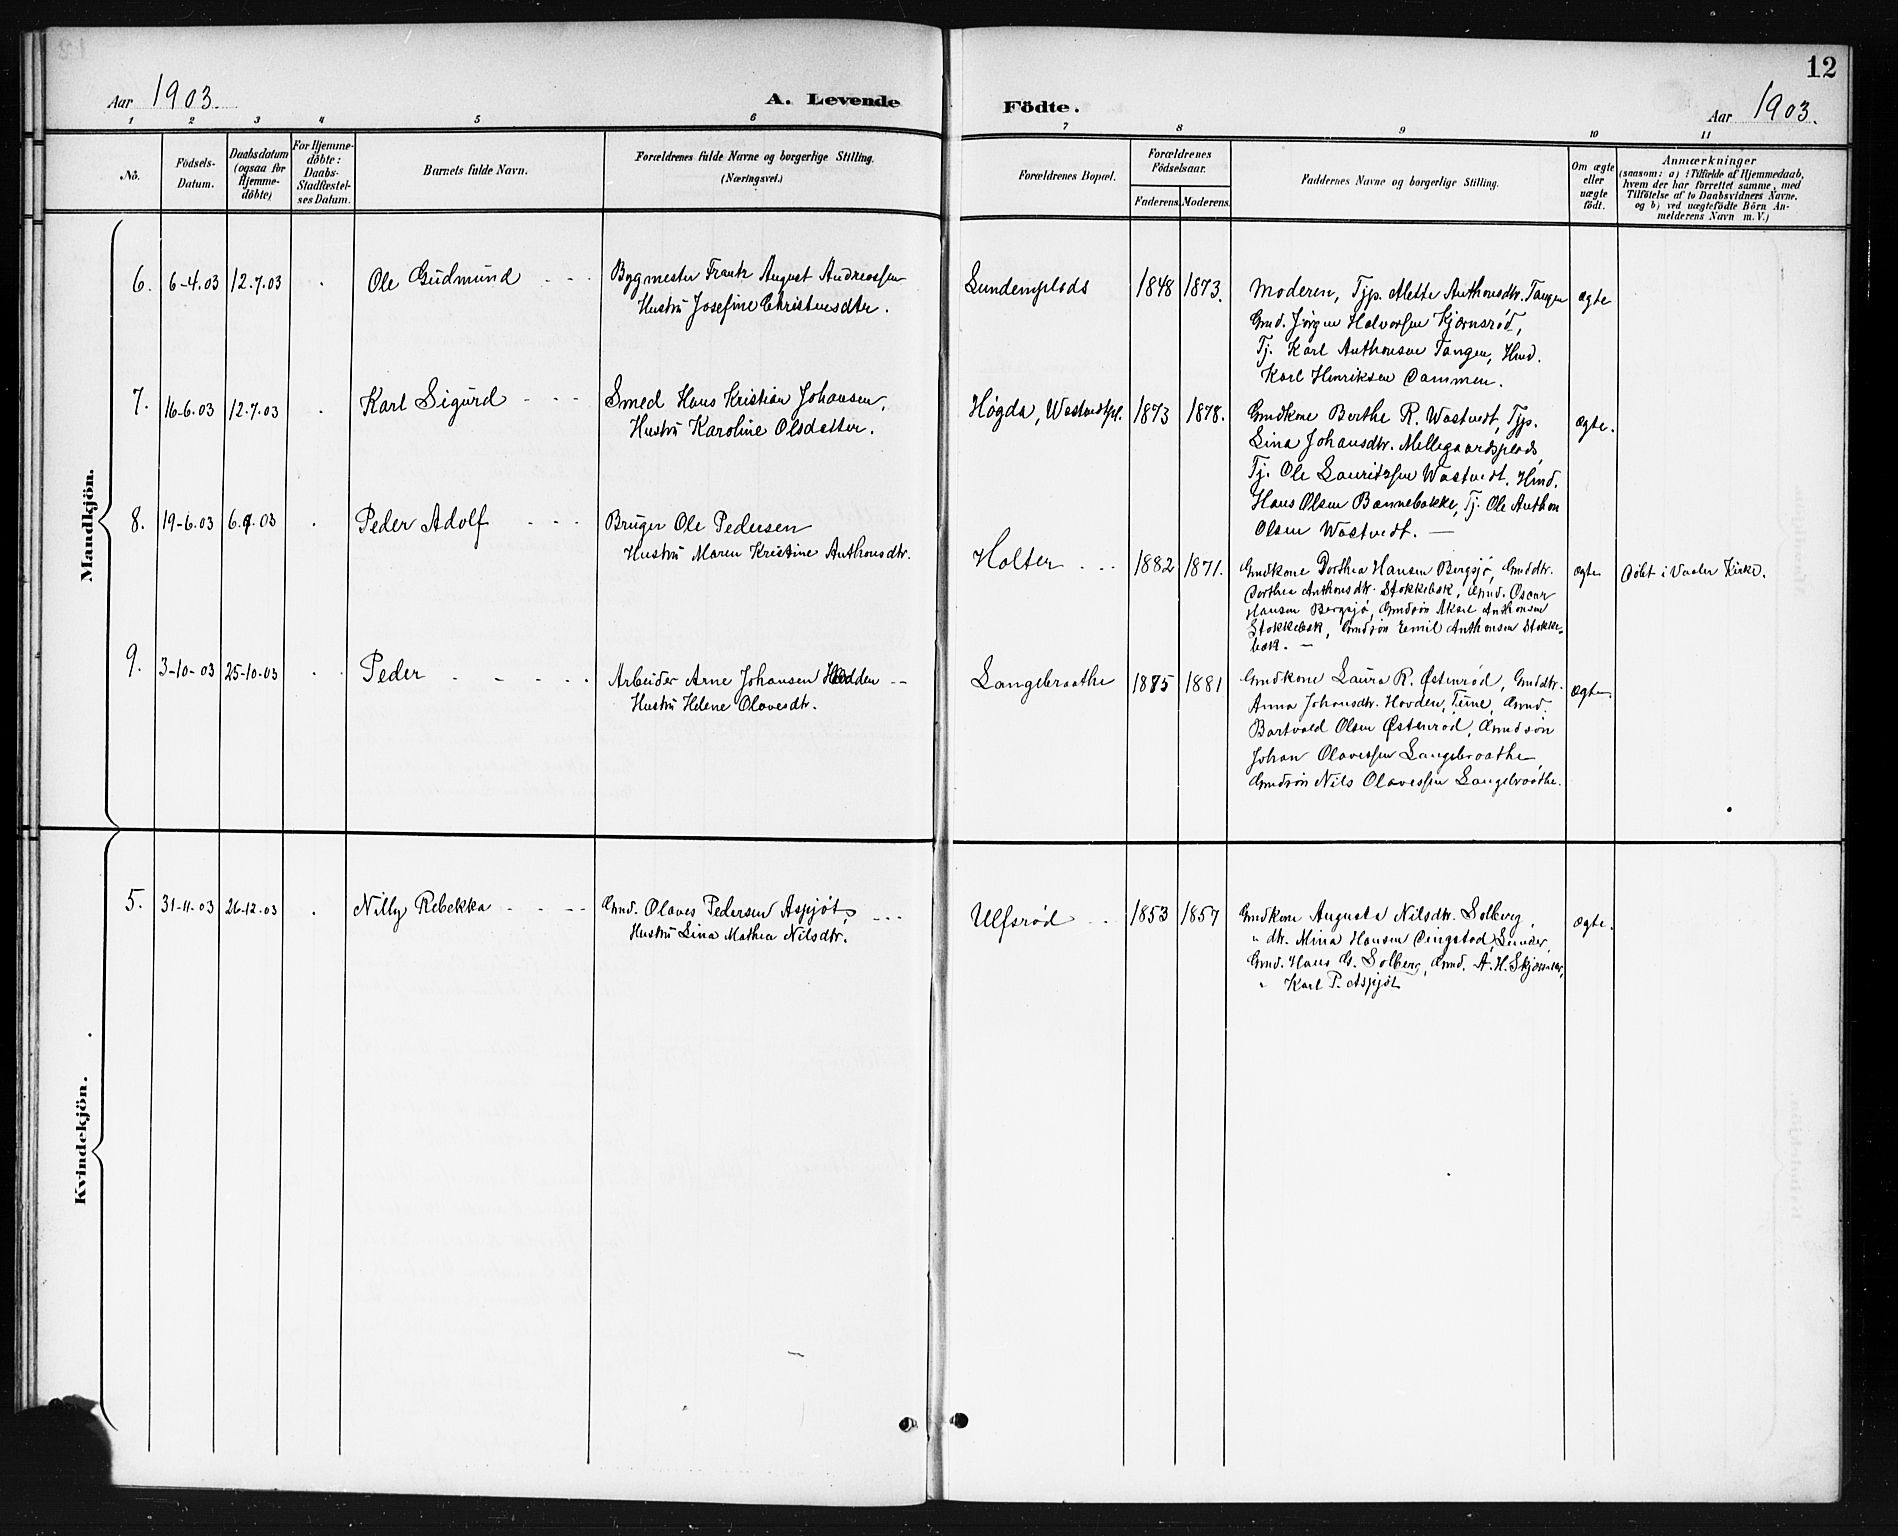 12
Aar 1903.
A. Levende
Födte.
Aar 1903.
1 2 3 4 5 6 7 8 9 10 11
No.
Födsels-
Datum.
Daabsdatum
(ogsaa for
Hjemme-
döbte)
For Hjemme-
döbte:
Daabs-
Stadfæstel-
ses Datum.
Barnets fulde Navn.
Forældrenes fulde Navne og borgerlige Stilling.
(Næringsvei.)
Forældrenes Bopæl.
Forældrenes
Födselsaar.
Faderens. Moderens.
Faddernes Navne og borgerlige Stilling.
Om ægte
eller
uægte
födt.
Anmærkninger
(saasom: a) i Tilfælde af Hjemmedaab,
hvem der har forrettet samme, med
Tilföielse af to Daabsvidners Navne.
og b) ved uægtefödte Börn An-
melderens Navn m. V.)
Mandkjön.
6. 6-4.03 12.7.03 Ole Gudmund Bygmester Frantz August Andreassen
Hustru Josefine Christensdtr.
Lundemplads 1848 1873. Moderen, Typ. Mette Anthonsdtr. Tangen ægte
Gmd. Jørgen Halvorsen Kjærnsrød,
Tj. Karl Anthonsen Tangen, Hmd.
Karl Henriksen Dammen.
7. 16-6.03 12.7.03 Karl Sigurd Smed Hans Kristian Johansen,
Hustru Karoline Olsdatter.
Høgda, Wastvedtpl. 1873 1878. Gmdkone Berthe R. Wastvedt, Typ. ægte.
Lina Johansdtr. Mellegaardsplads,
Tj. Ole Lauritzsen Wastvedt. Hmd.
Hans Olsen Bannebakke, Tj. Ole Anthon
Olsen Wastvedt. —
8. 19-6.03 6.9.03 Peder Adolf Bruger Ole Pedersen
Hustru Maren Kristine Anthonsdtr.
Holter 1882 1871. Gmdkone Dorthea Hansen Bergsjø, Gmddtr. ægte Döbt i Vaaler Kirke.
Dorthea Anthonsdtr. Stokkebæk, Gmd. Oscar
Hansen Bergsjø, Gmdsøn Aksel Anthonsen
Stokkebæk, Gmdsøn Emil Anthonsen Stokke-
bæk. —
9. 3-10-03 25-10-03 Peder Arbeider Arne Johansen Hodden
Hustru Helene Olavesdtr.
Langebraathe 1875 1881 Gmdkone Laura R. Østenrød, Gmddtr. ægte.
Anna Johansdtr. Hovden, Tune, Gmd.
Bartvald Olsen Østenrød, Gmdsøn
Johan Olavessen Langebraathe,
Gmdsøn Nils Olavessen Langebraathe.
Kvindekjön.
5. 31-11-03 26-12-03 Nilly Rebekka Gmd. Olaves Pedersen Aspjøt,
Hustru Lina Mathea Nilsdtr.
Ulfsrød 1853 1857 Gmdkone Augusta Nilsdtr. Solberg, ægte.
" dtr. Mina Hansen Dingstad, Sunder,
Gmd. Hans G. Solberg, Gmd. A. H. Skjønnler,
" Karl P. Aspjøt